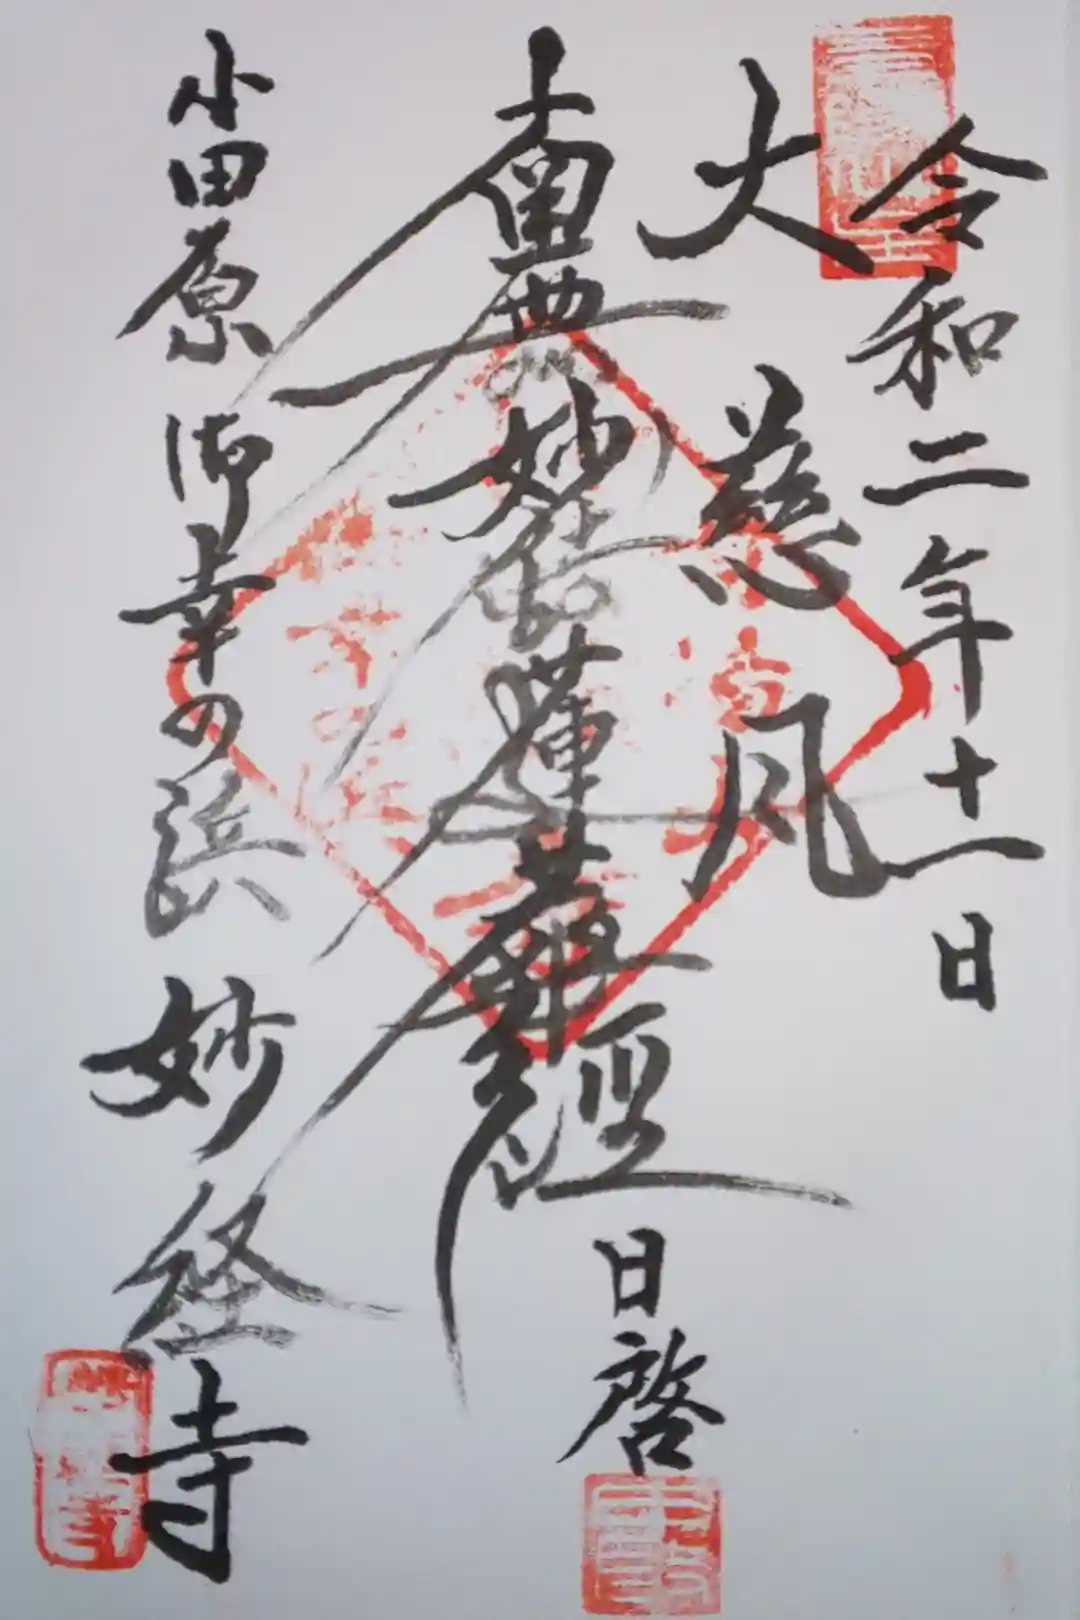 令和二年十一日
大慈風
南無妙法蓮華經
日啓
小田原 御幸の浜 妙経寺